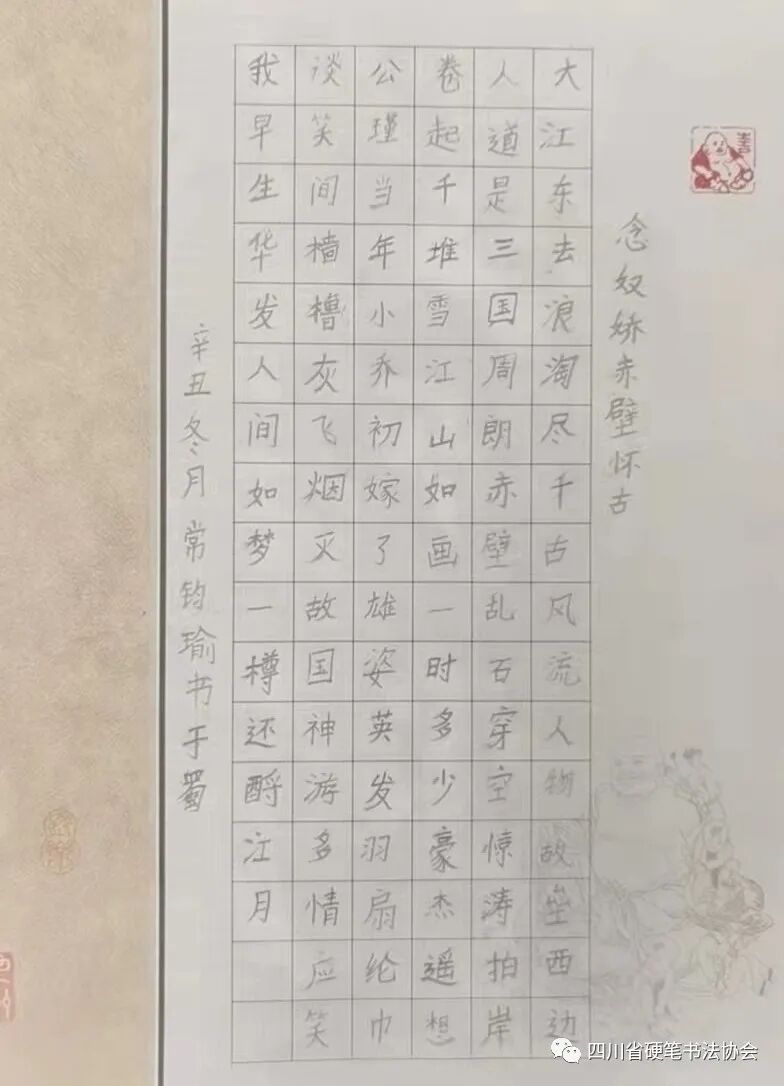 念奴娇赤壁怀古
大江东去浪淘尽千古风流人物故垒西边
人道是三国周朗赤壁乱石穿空惊涛拍岸
卷起千堆雪江山如画一时多少豪杰遥想
公瑾当年小乔初嫁了雄姿英发羽扇纶巾
谈笑间樯橹灰飞烟灭故国神游多情应笑
我早生华发人间如梦一樽还酹江月
辛丑冬月常钧瑜书于蜀
善
四川省硬笔书法协会